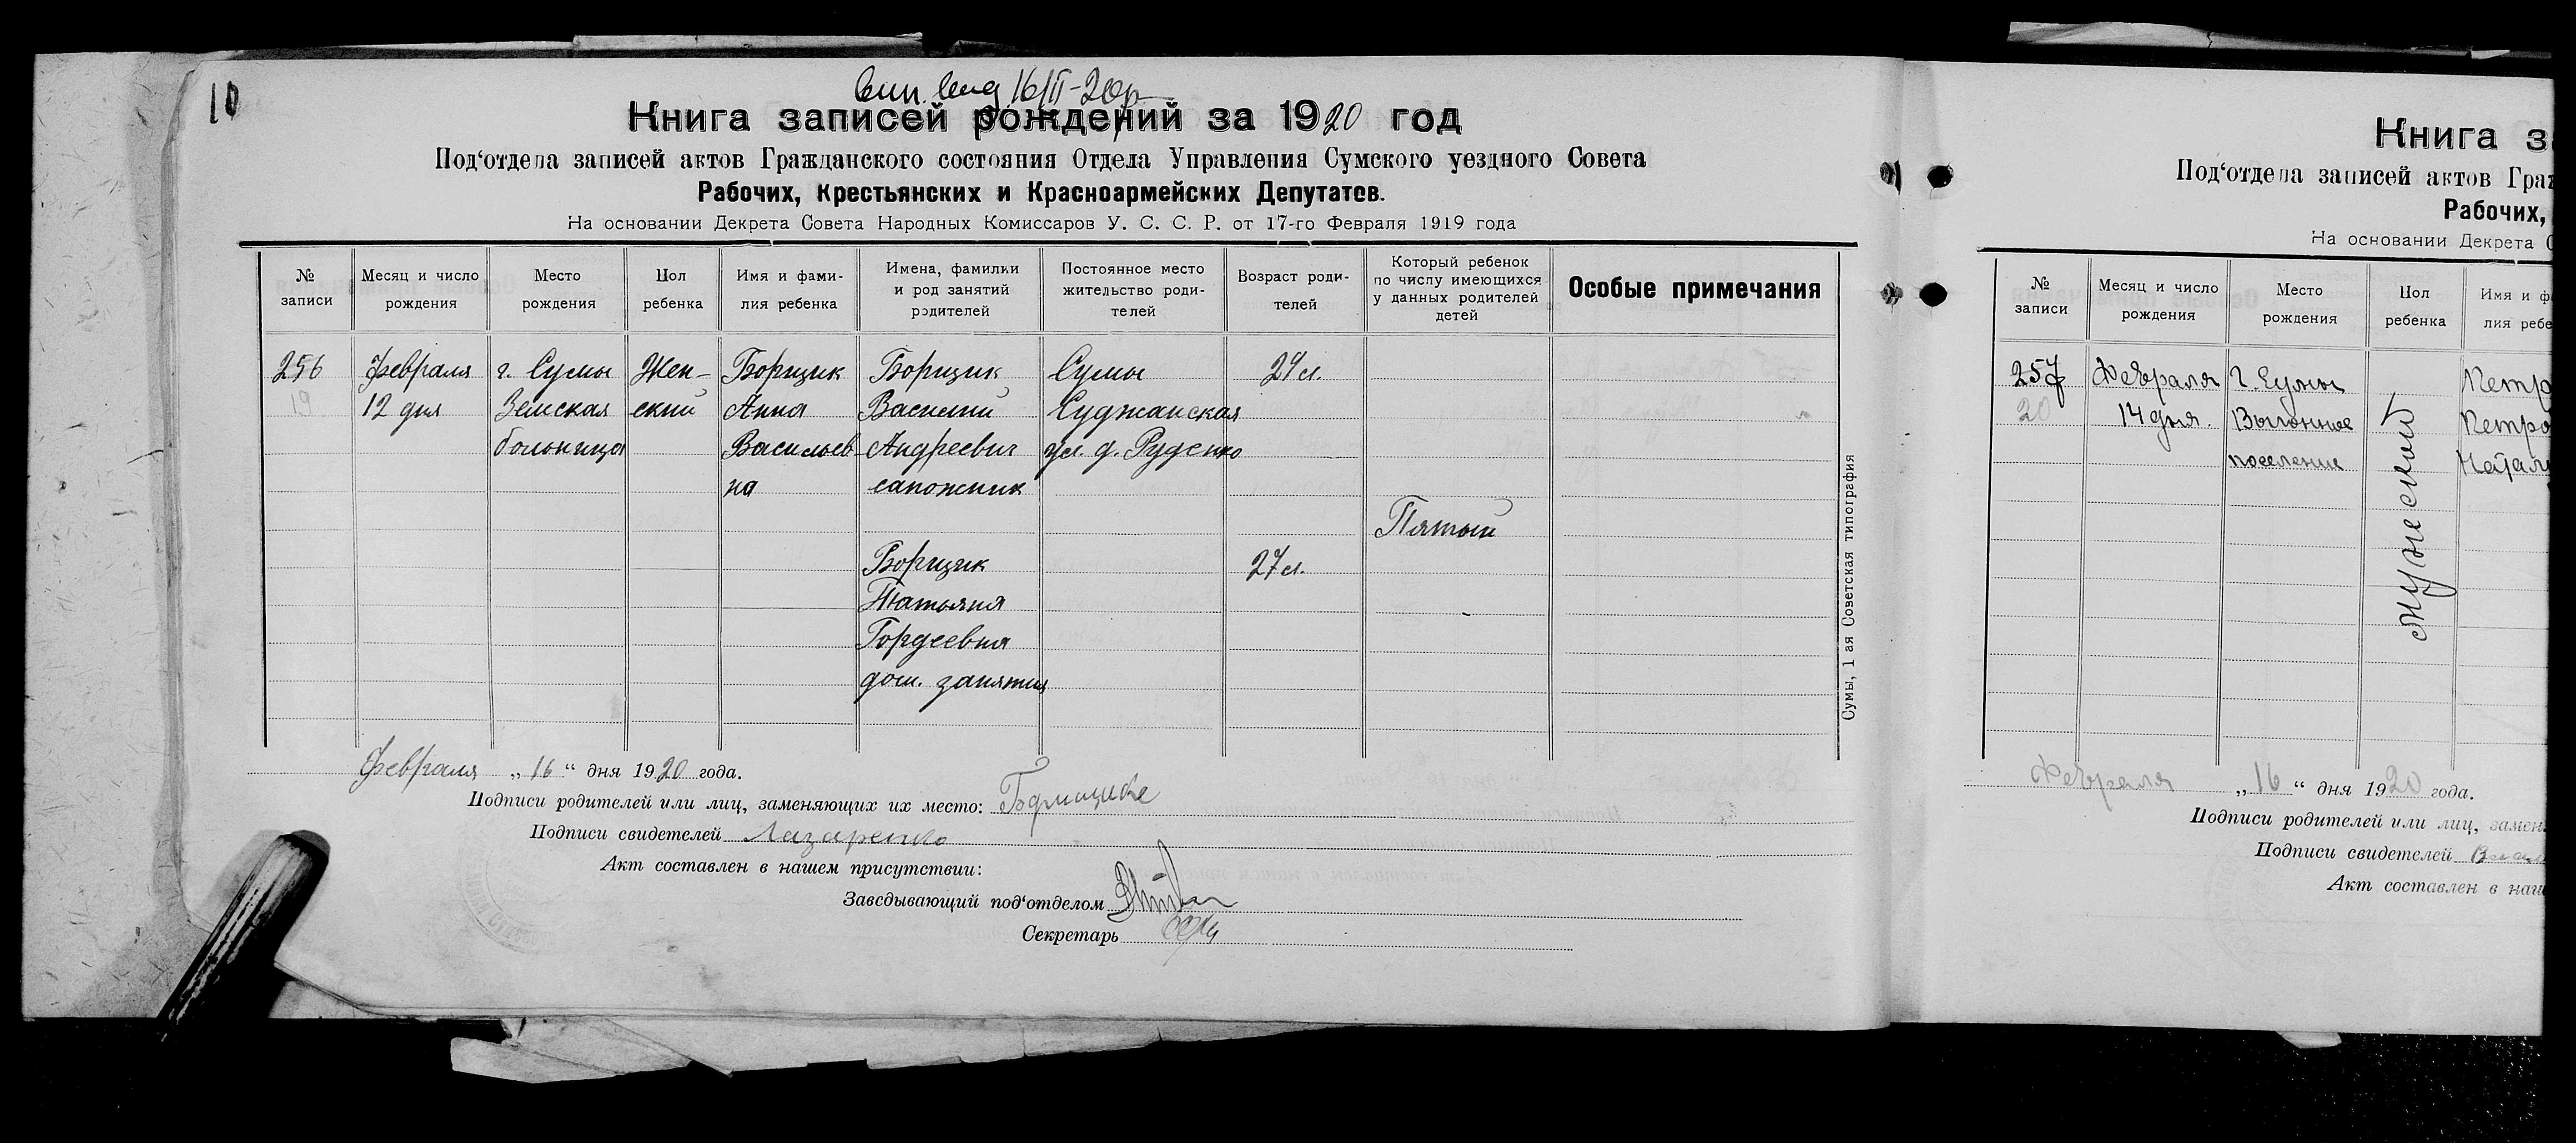 10
16/II-20
Книга записей рождений за 1920 год
Под‘отдела записей актов Гражданского состояния Отдела Управления Сумского уездного Совета
Рабочих, Крестьянских и Красноармейских Депутатов.
На основании Декрета Совета Народных Комиссаров У. С. С. Р. от 17-го Февраля 1919 года
№ записи
Месяц и число рождения
Место рождения
Пол ребенка
Имя и фами-
лия ребенка
Имена, фамилии
и род занятий
родителей
Постоянное место
жительство роди-
телей
Возраст роди-
телей
Который ребенок
по числу имеющихся
у данных родителей
детей
Особые примечания
256
19
Февраля
12 дня
г. Сумы
Земская
больница
Жен-
ский
Борщик
Анна
Васильев-
на
Борщик
Василий
Андреевич
сапожник
Сумы
Суджанская
ул. д. Руденко
29 л.
Пятый
Борщик
Татьяна
Гордеевна
дом. занятия
27 л.
Февраля „16“ дня 1920 года.
Подписи родителей или лиц, заменяющих их место:
Подписи свидетелей Лазаренко
Акт составлен в нашем присутствии:
Заведывающий под‘отделом
Секретарь
Сумы, 1 ая Советская типография
Книга з
Под‘отдела записей актов Граж
Рабочих,
На основании Декрета С
№ записи
Месяц и число рождения
Место рождения
Пол ребенка
Имя и ф
лия ребе
257
20
Февраля
14 дня.
г. Сумы
Выгонное
поселение
мужеский
Петр
Петро
Натал
Февраля „16“ дня 1920 года.
Подписи родителей или лиц, замен
Подписи свидетелей
Акт составлен в наш